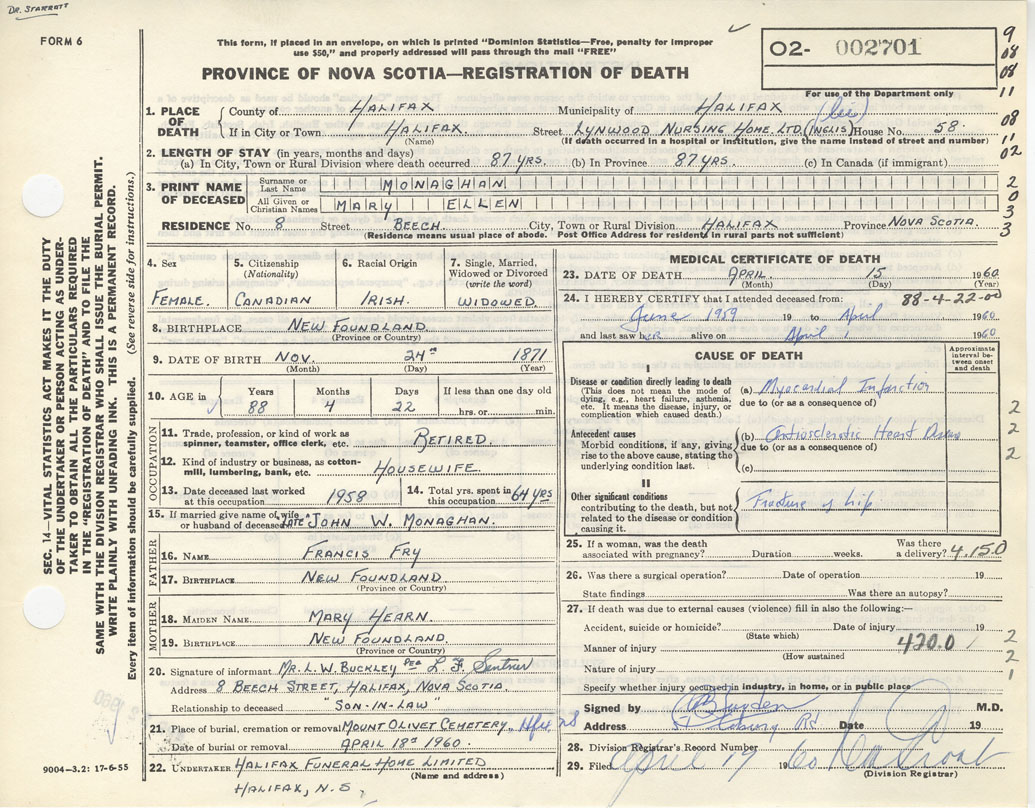 DR. STARRATT
FORM 6
This form, if placed in an envelope, on which is printed "Dominion Statistics—Free, penalty for improper
use $50," and properly addressed will pass through the mail "FREE"
PROVINCE OF NOVA SCOTIA—REGISTRATION OF DEATH
02- 002701
For use of the Department only
9
08
08
11
08
11
02
1. PLACE OF DEATH
County of HALIFAX Municipality of HALIFAX
If in City or Town HALIFAX. Street LYNWOOD NURSING HOME LTD. (INGLIS) House No. 58.
(Name) (If death occurred in a hospital or institution, give the name instead of street and number)
2. LENGTH OF STAY (in years, months and days)
(a) In City, Town or Rural Division where death occurred 87 YRS. (b) In Province 87 YRS. (c) In Canada (if immigrant)
3. PRINT NAME OF DECEASED
Surname or Last Name MONAGHAN
All Given or Christian Names MARY ELLEN
RESIDENCE No. 8 Street BEECH. City, Town or Rural Division HALIFAX Province NOVA SCOTIA.
(Residence means usual place of abode. Post Office Address for residents in rural parts not sufficient)
2
0
3
3
SEC. 14—VITAL STATISTICS ACT MAKES IT THE DUTY
OF THE UNDERTAKER OR PERSON ACTING AS UNDER-
TAKER TO OBTAIN ALL THE PARTICULARS REQUIRED
IN THE "REGISTRATION OF DEATH" AND TO FILE THE
SAME WITH THE DIVISION REGISTRAR WHO SHALL ISSUE THE BURIAL PERMIT.
WRITE PLAINLY WITH UNFADING INK. THIS IS A PERMANENT RECORD.
Every item of information should be carefully supplied. (See reverse side for instructions.)
4. Sex
FEMALE.
5. Citizenship
(Nationality)
CANADIAN
6. Racial Origin
IRISH.
7. Single, Married,
Widowed or Divorced
(write the word)
WIDOWED
8. BIRTHPLACE NEW FOUNDLAND.
(Province or Country)
9. DATE OF BIRTH NOV. 24th 1871
(Month) (Day) (Year)
10. AGE in
Years 88
Months 4
Days 22
If less than one day old
hrs. or min.
OCCUPATION
11. Trade, profession, or kind of work as
spinner, teamster, office clerk, etc. RETIRED.
12. Kind of industry or business, as cotton-
mill, lumbering, bank, etc. HOUSEWIFE.
13. Date deceased last worked
at this occupation 1958
14. Total yrs. spent in
this occupation 64 YRS
15. If married give name of wife
or husband of deceased LATE "JOHN W. MONAGHAN.
FATHER
16. NAME FRANCIS FRY
17. BIRTHPLACE NEW FOUNDLAND
(Province or Country)
MOTHER
18. MAIDEN NAME MARY HEARN.
19. BIRTHPLACE NEW FOUNDLAND.
(Province or Country)
20. Signature of informant MR. L. W. BUCKLEY PER L. F. Sentner
Address 8 BEECH STREET, HALIFAX, NOVA SCOTIA.
Relationship to deceased "SON-IN-LAW"
21. Place of burial, cremation or removal MOUNT OLIVET CEMETERY, Hfx, NS
Date of burial or removal APRIL 18th 1960.
22. UNDERTAKER HALIFAX FUNERAL HOME LIMITED
(Name and address)
HALIFAX, N.S.
9004—3.2: 17-6-55
MEDICAL CERTIFICATE OF DEATH
23. DATE OF DEATH APRIL. 15 1960.
(Month) (Day) (Year)
24. I HEREBY CERTIFY that I attended deceased from: 88-4-22-00
June 1959 19 to April 1960
and last saw her alive on April 1960
CAUSE OF DEATH
Approximate
interval be-
tween onset
and death
I
Disease or condition directly leading to death
(This does not mean the mode of
dying, e.g., heart failure, asthenia,
etc. It means the disease, injury, or
complication which caused death.)
(a) Myocardial Infarction
due to (or as a consequence of)
Antecedent causes
Morbid conditions, if any, giving
rise to the above cause, stating the
underlying condition last.
(b)
Heart Disease
due to (or as a consequence of)
(c)
II
Other significant conditions
contributing to the death, but not
related to the disease or condition
causing it.
Fracture of hip
2
2
2
25. If a woman, was the death
associated with pregnancy? Duration weeks.
Was there
a delivery? 4.150
26. Was there a surgical operation? Date of operation 19
State findings Was there an autopsy?
27. If death was due to external causes (violence) fill in also the following:—
Accident, suicide or homicide? Date of injury 19
(State which)
Manner of injury 420.0
(How sustained
Nature of injury
Specify whether injury occurred in industry, in home, or in public place
2
2
1
Signed by M.D.
Address Rd Date 19
28. Division Registrar's Record Number
29. Filed April 19 1960
(Division Registrar)